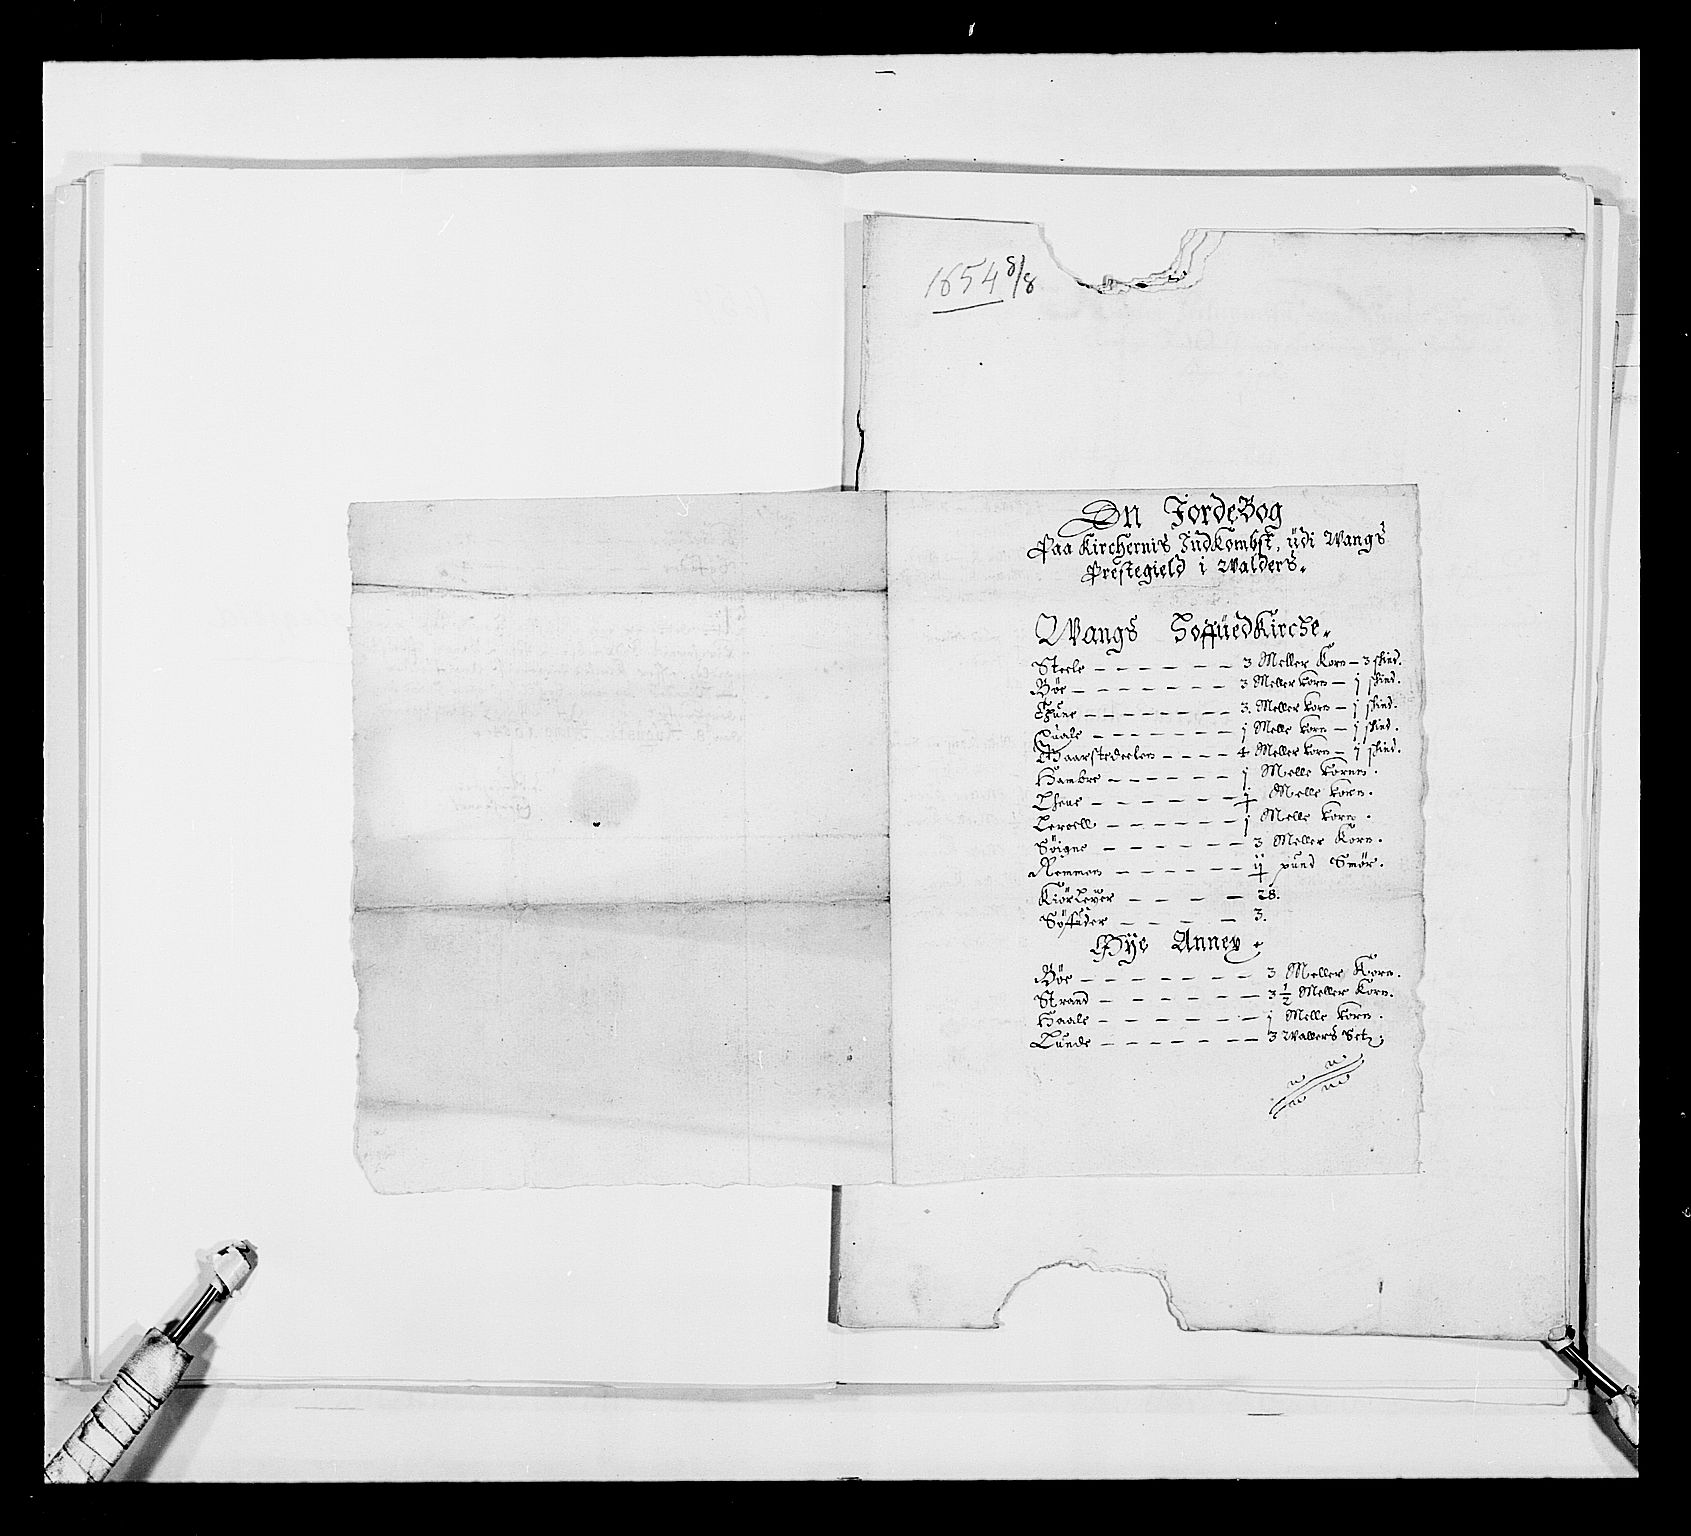 1654 8/8
En JordeBog
Paa Kirchernis IndKombst, üdi Wangs
Prestegield i Walders.
Wangs HoffüedKirche.
Steele — 3 Meller Korn — 3 skind.
Böe — 3 Meller korn — j skind.
Thüne — 3. Meller korn — j skind.
Quale — j Melle korn — j skind.
Gaarstedeelen — 4 Meller korn — j skind.
Hambre — j Melle kornn.
— j Melle korn.
— j Melle korn.
Söigne — 3 Meller Korn.
Remmen — ij pund Smør.
Kiör — 28.
— 3.
Öÿe Annex.
Böe — 3 Meller Korn.
Strand — 3 1/2 Meller Korn.
Haale — j Melle korn.
Lunde — 3 Wallers Set.